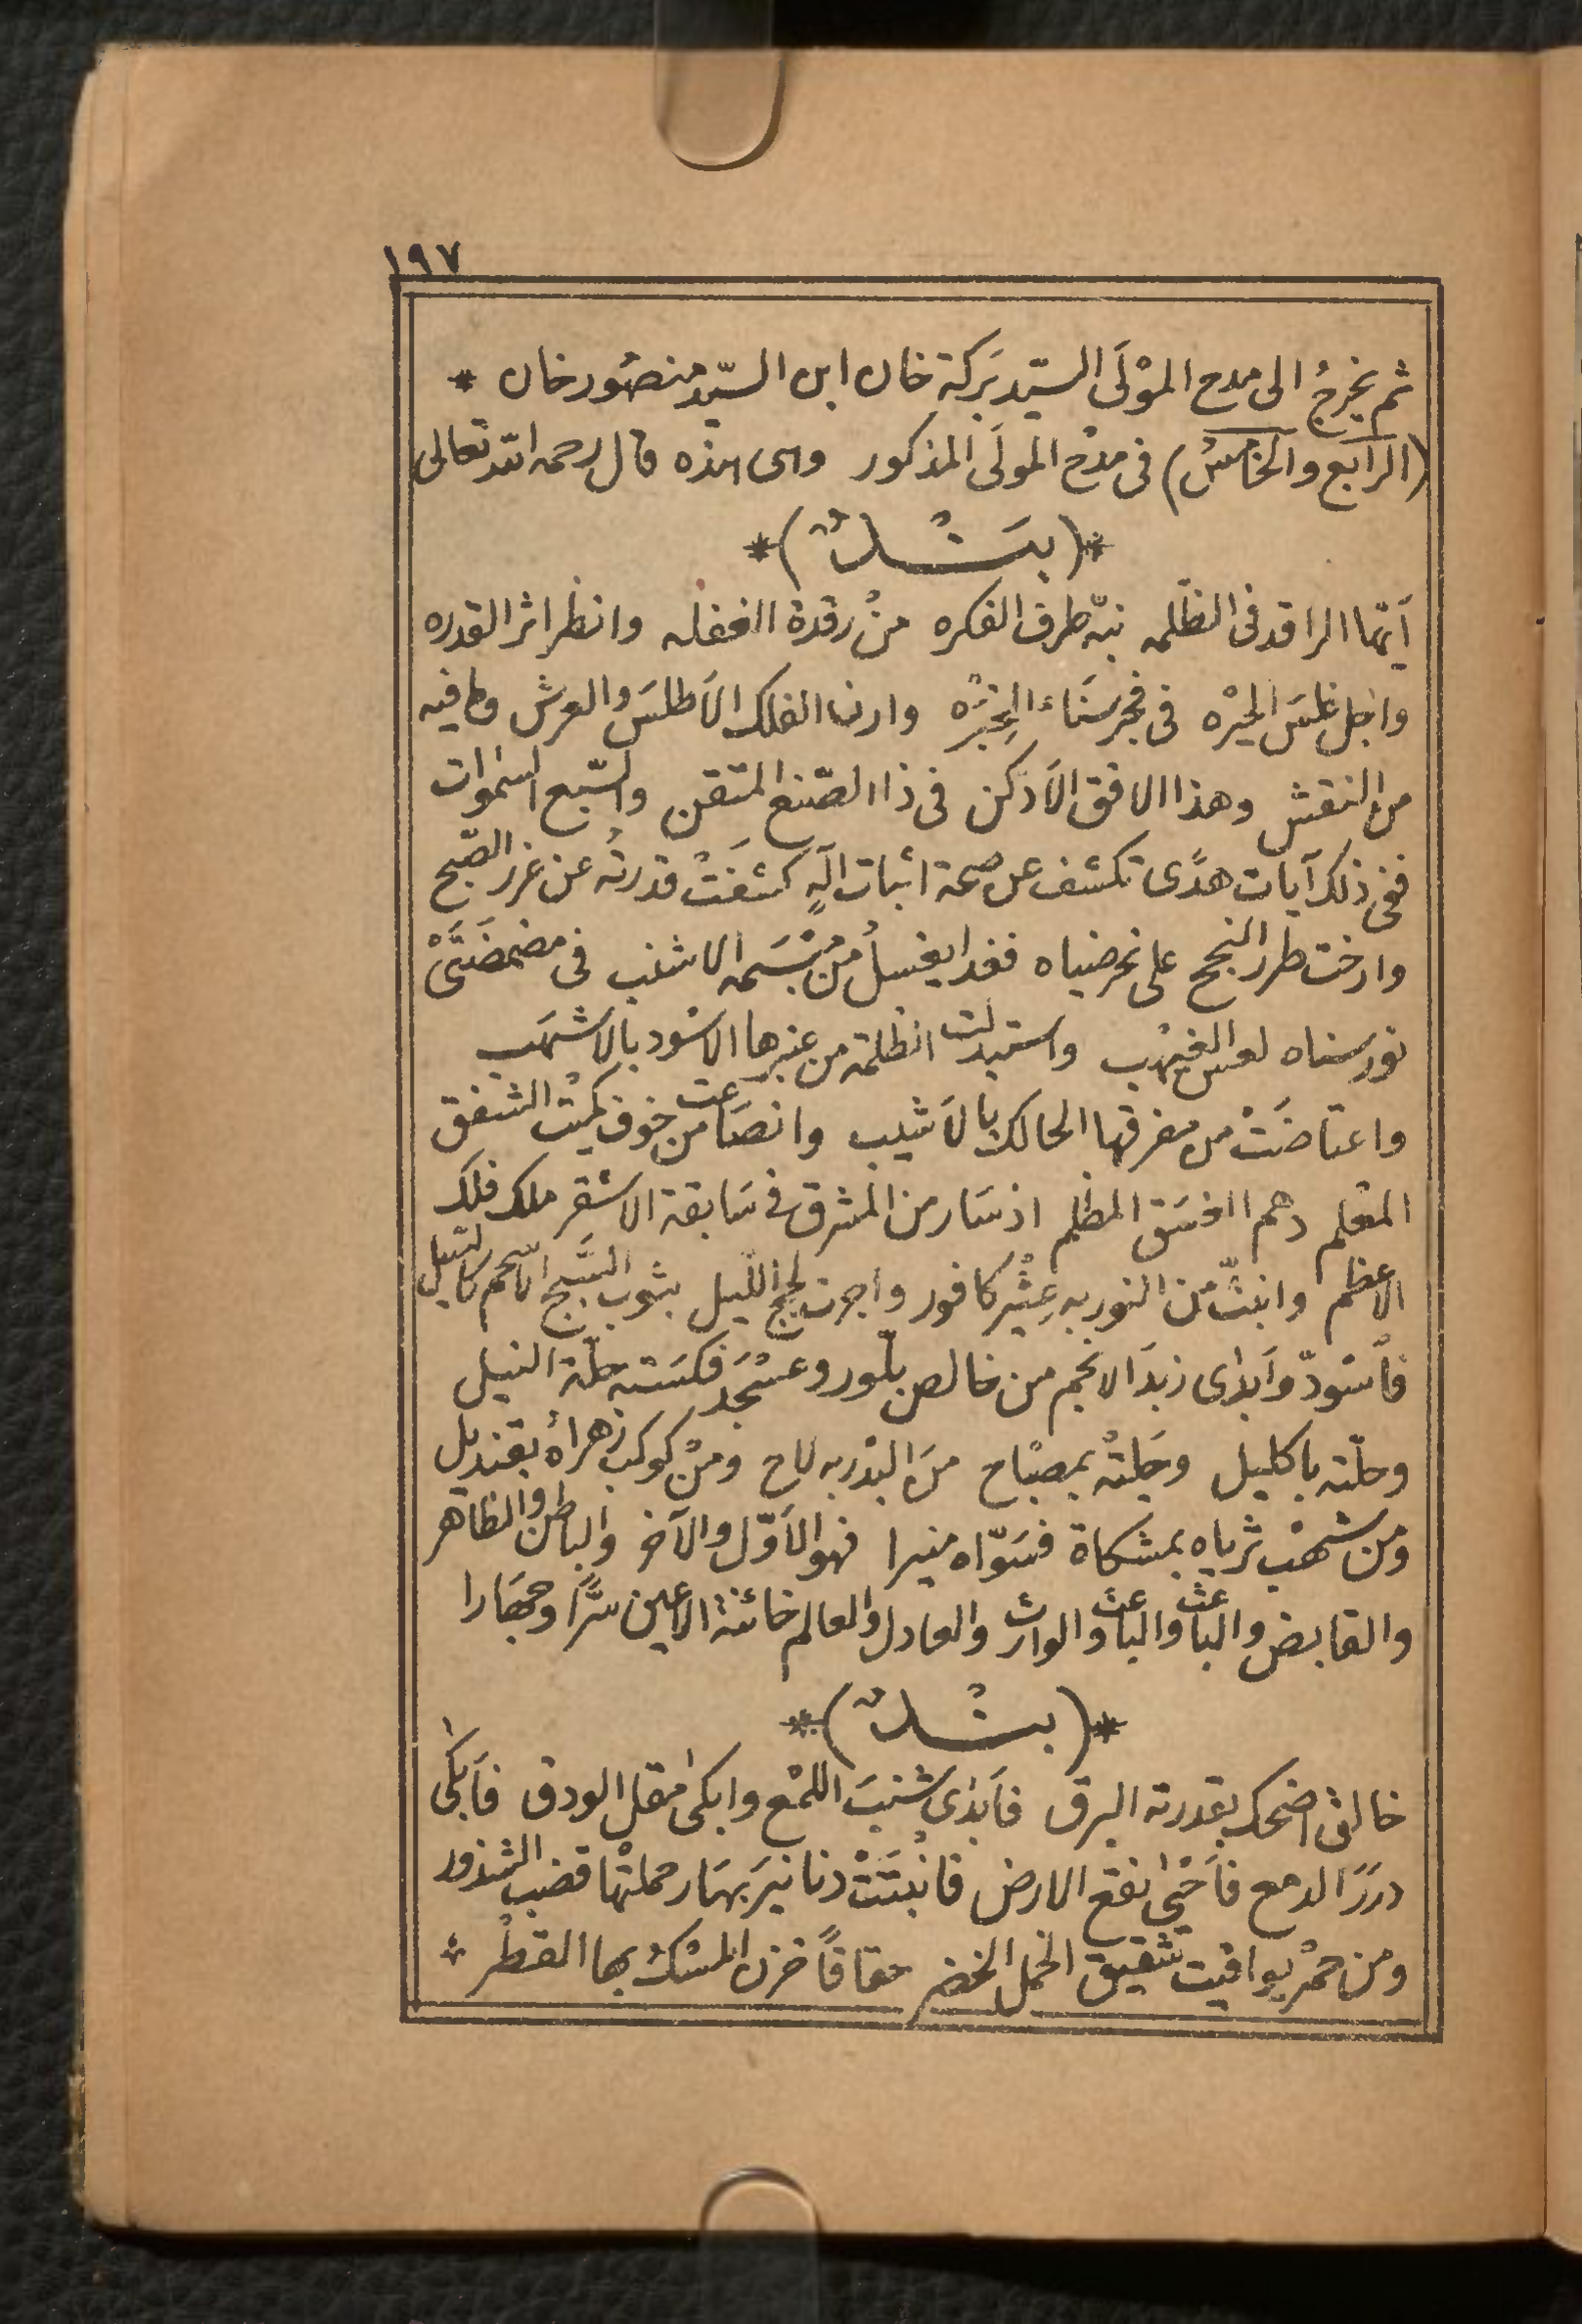 ١٩٧
ثم يخرجُ الى مدح المَوْلَى السيّد بَركة خان ابن السيّد منصُور خان *
(الرابع والخامسُ) فى مدْح المولَى المذكور وهى هذه قال رحمه الله تعالى
*(بـَنْدٌ)*
اَيّها الراقد فى الظّلمه نبّه طرف الفكره منْ رقدة الغفله وانظر اثر القدره
واجل غلسَ الحيْره فى فجر سنَاء الخِبْرَه وارن الفلك الاَطلسَ والعرش وما فيه
من النقش وهذا الافق الاَدكن فى ذا الصّنع المتقن والسّبع السّمٰوات
ففى ذلك آيات هدًى تكشف عن صحة اثبات الٓهٍ كشفَتْ قدرتهُ عن غرر الصّبح
وارخت طرر الجنح على نحر ضياه فغدا يغسلُ منْ مبْسَمه الاشنب فى مضمضَتَىْ
نور سناه لعس الغيْهب واستبدلت الظلمة من عنبرها الاسْود بالاشهَب
واعتاضَتْ من مفرقها الحالك بالاَشيب وانصَاعت من خوف كميْت الشفق
المعْلم دهم الغسَق المظلم اذ سَار من المشرق فى سَابقة الاشقر ملك فلك
الاعظم وانبثّ من النور به عِثْيَر كافور واجرت لجج اللّيل بثوب السَّبج الاَسْحم كالسّيل
فاَسْودّ وَابدٰى زبدَ الانجم من خالص بلّور وعسْجَد فكسَته حلّة النيل
وحلّته باكليل وجَلتْه بمصْبَاح منَ البدْر به لاح ومنْ كوكب زهراهُ بقنديل
ومن شهْب ثرياه بمشكاة فسَوّاه منيرا فهو الاَوّل والآخر والباطن والظاهر
والقابض والباعث والباعث والوارث والعادل والعالم خائنة الاعين سرًّا وجهَارا
*(بـنْدٌ)*
خالق اضحك بقدرته البرق فاَبدٰى شنبَ اللمْع وابكىٰ مقل الودق فاَبكىٰ
دررَ الدمع فاَحْيىٰ نقع الارض فانْبَتَتْ دنانيَر بهَار حملتْها قضب الشذور
ومن حمْر يواقيت شقيق الخمل الخضر حقاقًا خزن المسْكُ بها القطْر *